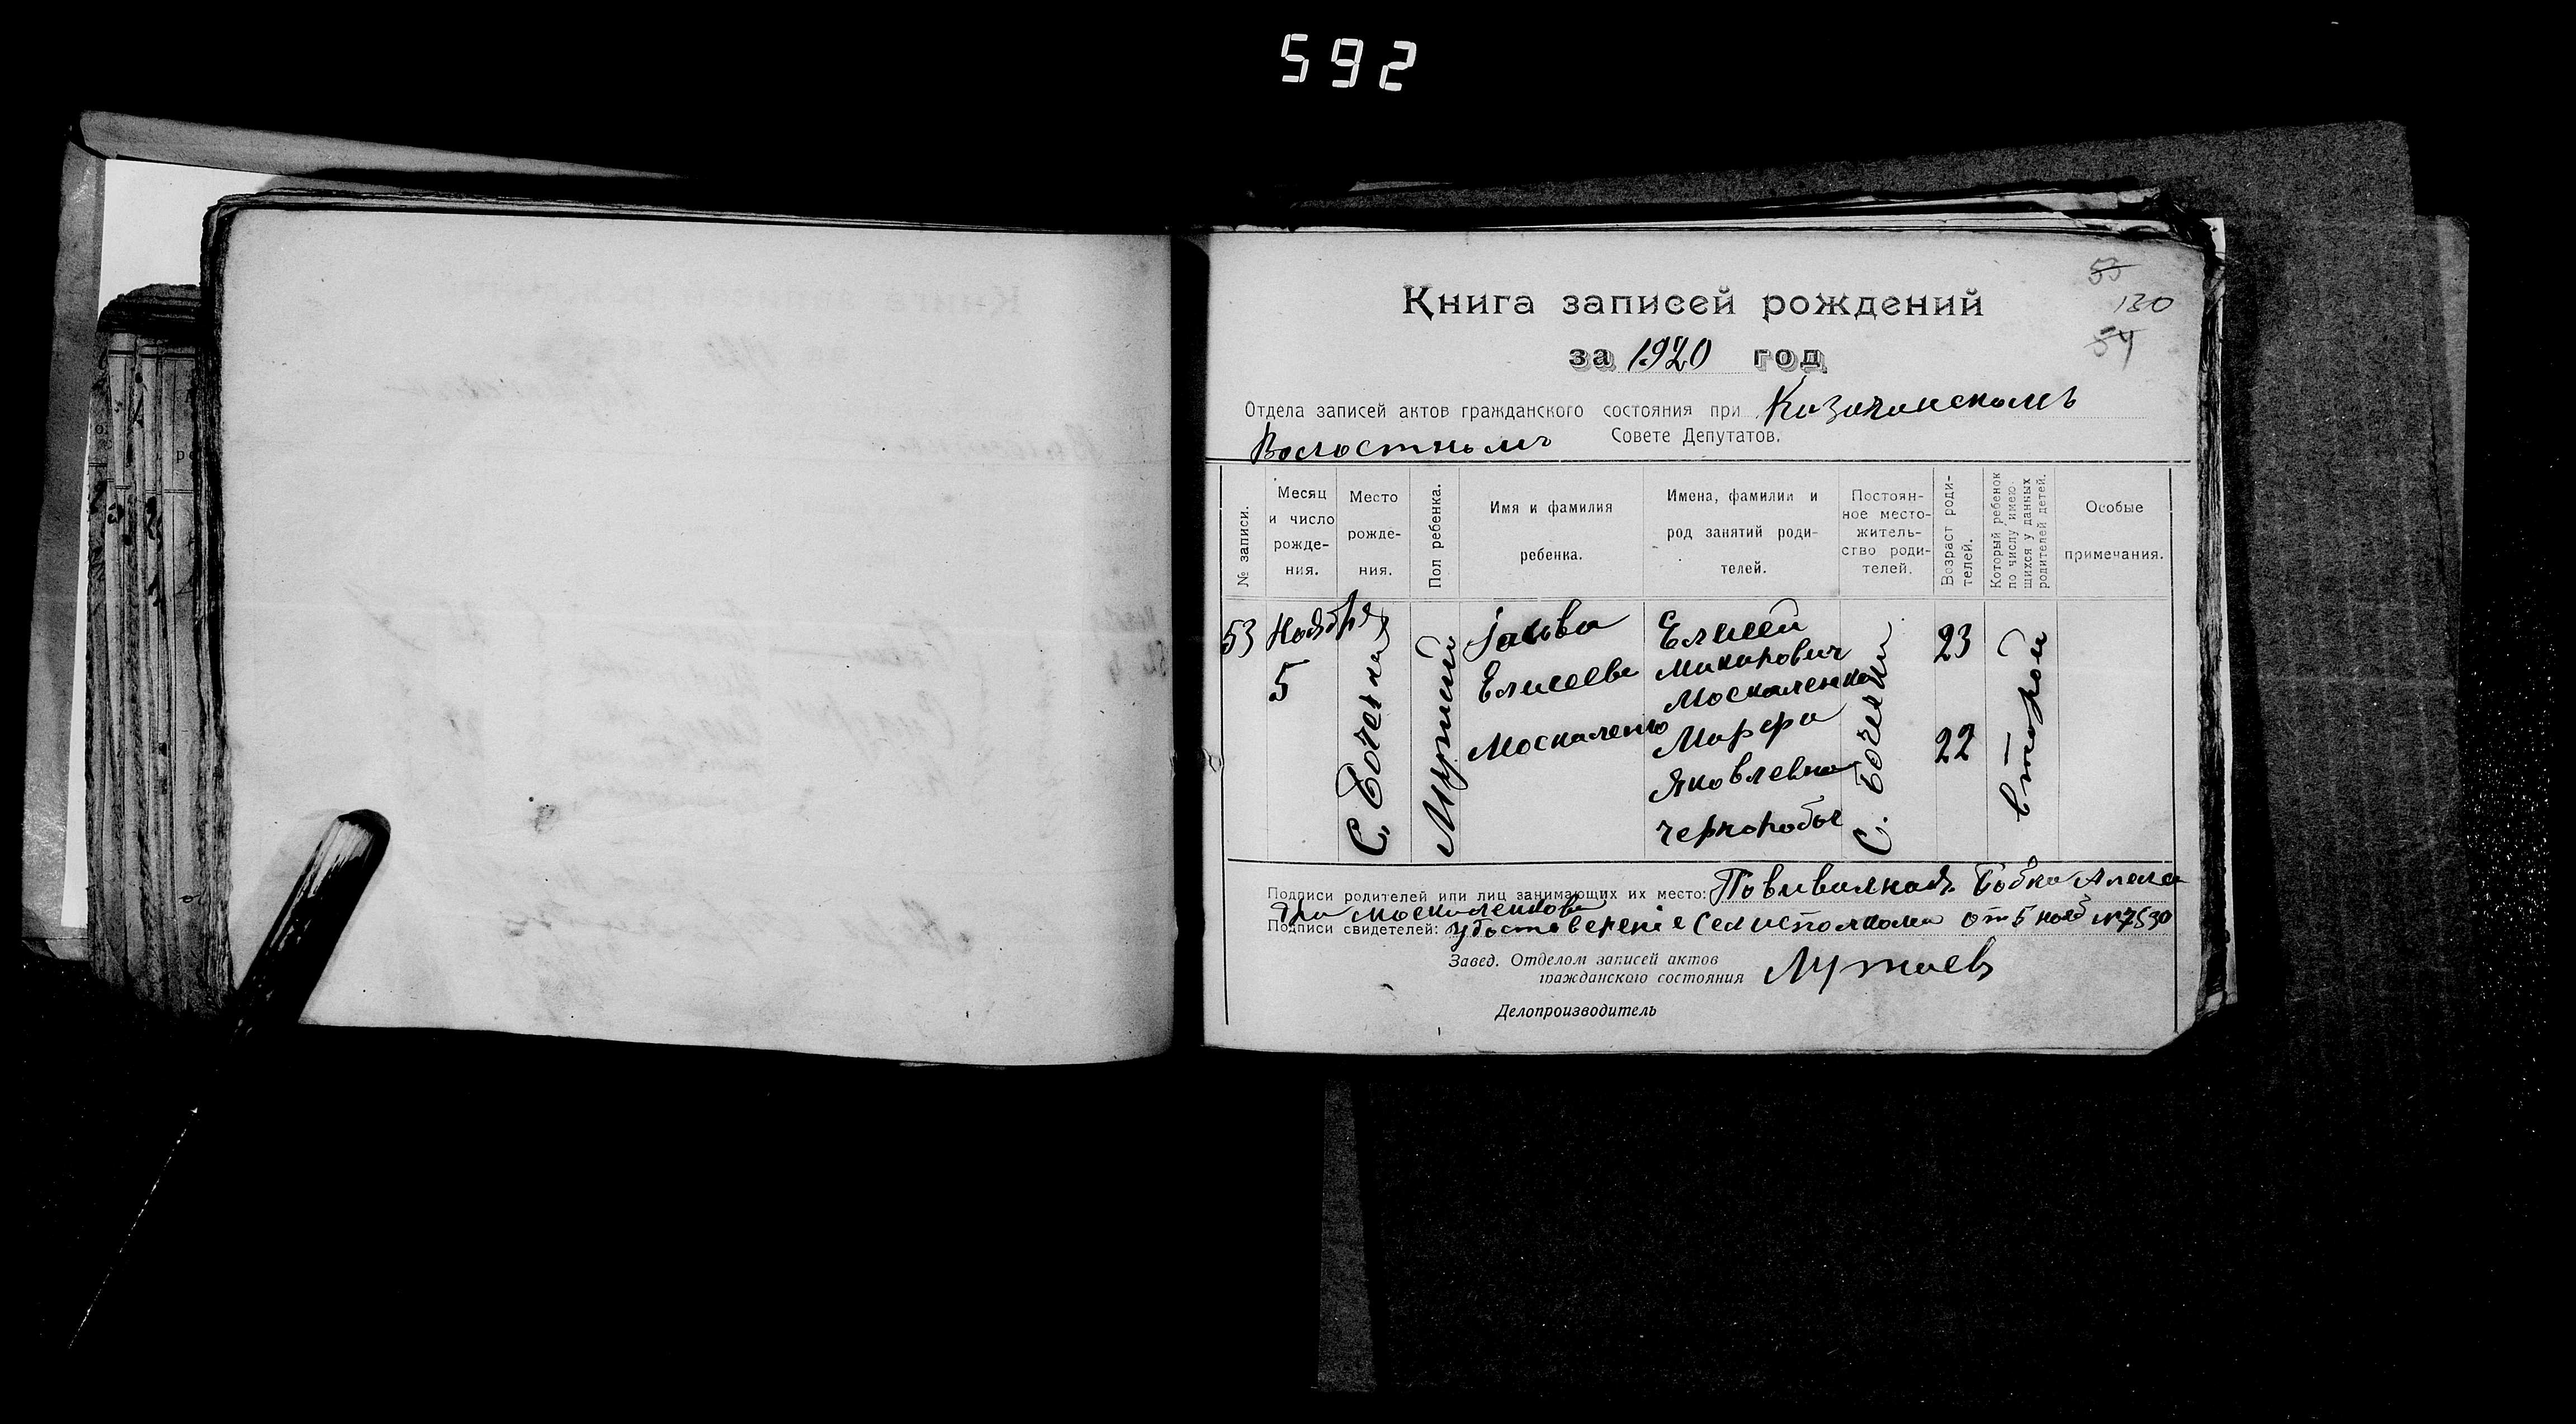 592
55
130
54
Книга записей рождений
за 1920 год
Отдела записей актов гражданского состояния при Казачанскомъ
Волостномъ Совете Депутатов.
№ записи.
Месяц и число рожде-ния.
Место рожде-ния.
Пол ребенка.
Имя и фамилия ребенка.
Имена, фамилии и род занятий роди-телей.
Постоян-ное место-житель-ство роди-телей.
Возраст роди-телей.
Который ребенок по числу имею-щихся у данных родителей детей.
Особые примечания.
53
Ноября
5
С. Бочечки
Мужской
Іакова
Елисеева
Москаленко
Елисей
Макарович
Москаленко
Марфа
Яковлевна
чернороб
С. Бочечки
23
22
второй
Подписи родителей или лиц занимающих их место: Повивальная Бабка Алекса
ндра Москаленкова
Подписи свидетелей: удостоверенiе Сельисполкома от 5 нояб №7530
Завед. Отделом записей актов
гражданского состояния
Делопроизводитель